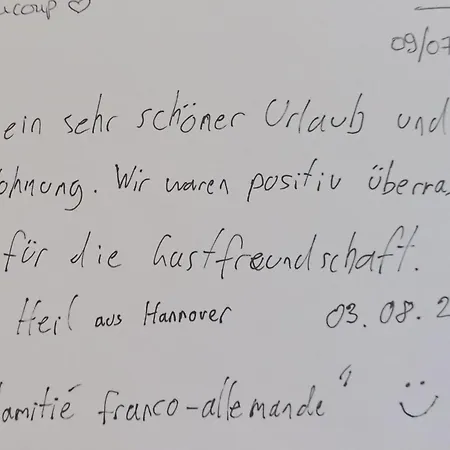 ucoup ♡
09/07
ein sehr schöner Urlaub und
ohnung. Wir waren positiv überra
für die Gastfreundschaft.
Heil aus Hannover 03.08.2
lamitié franco-allemande" :)